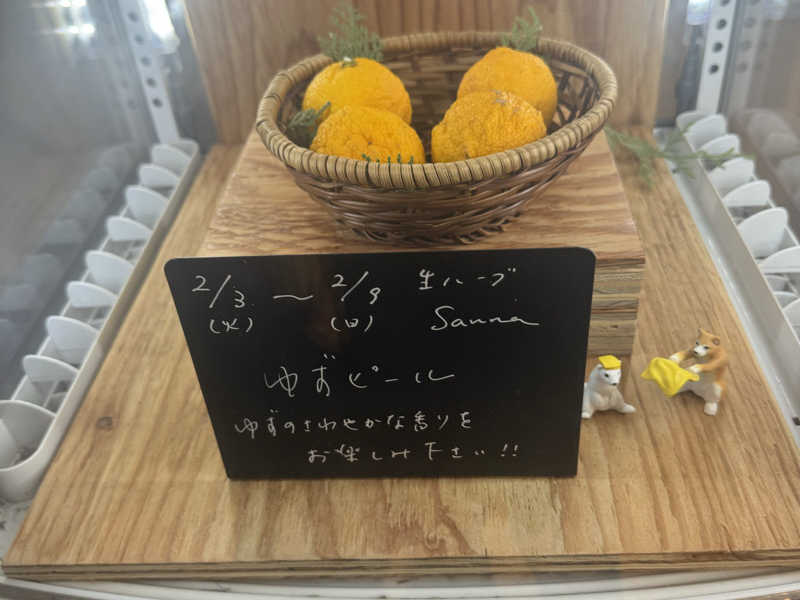 2/3 ～ 2/9 生ハーブ
(火) (日) Sauna
ゆずピール
ゆずのさわやかな香りを
お楽しみ下さい!!